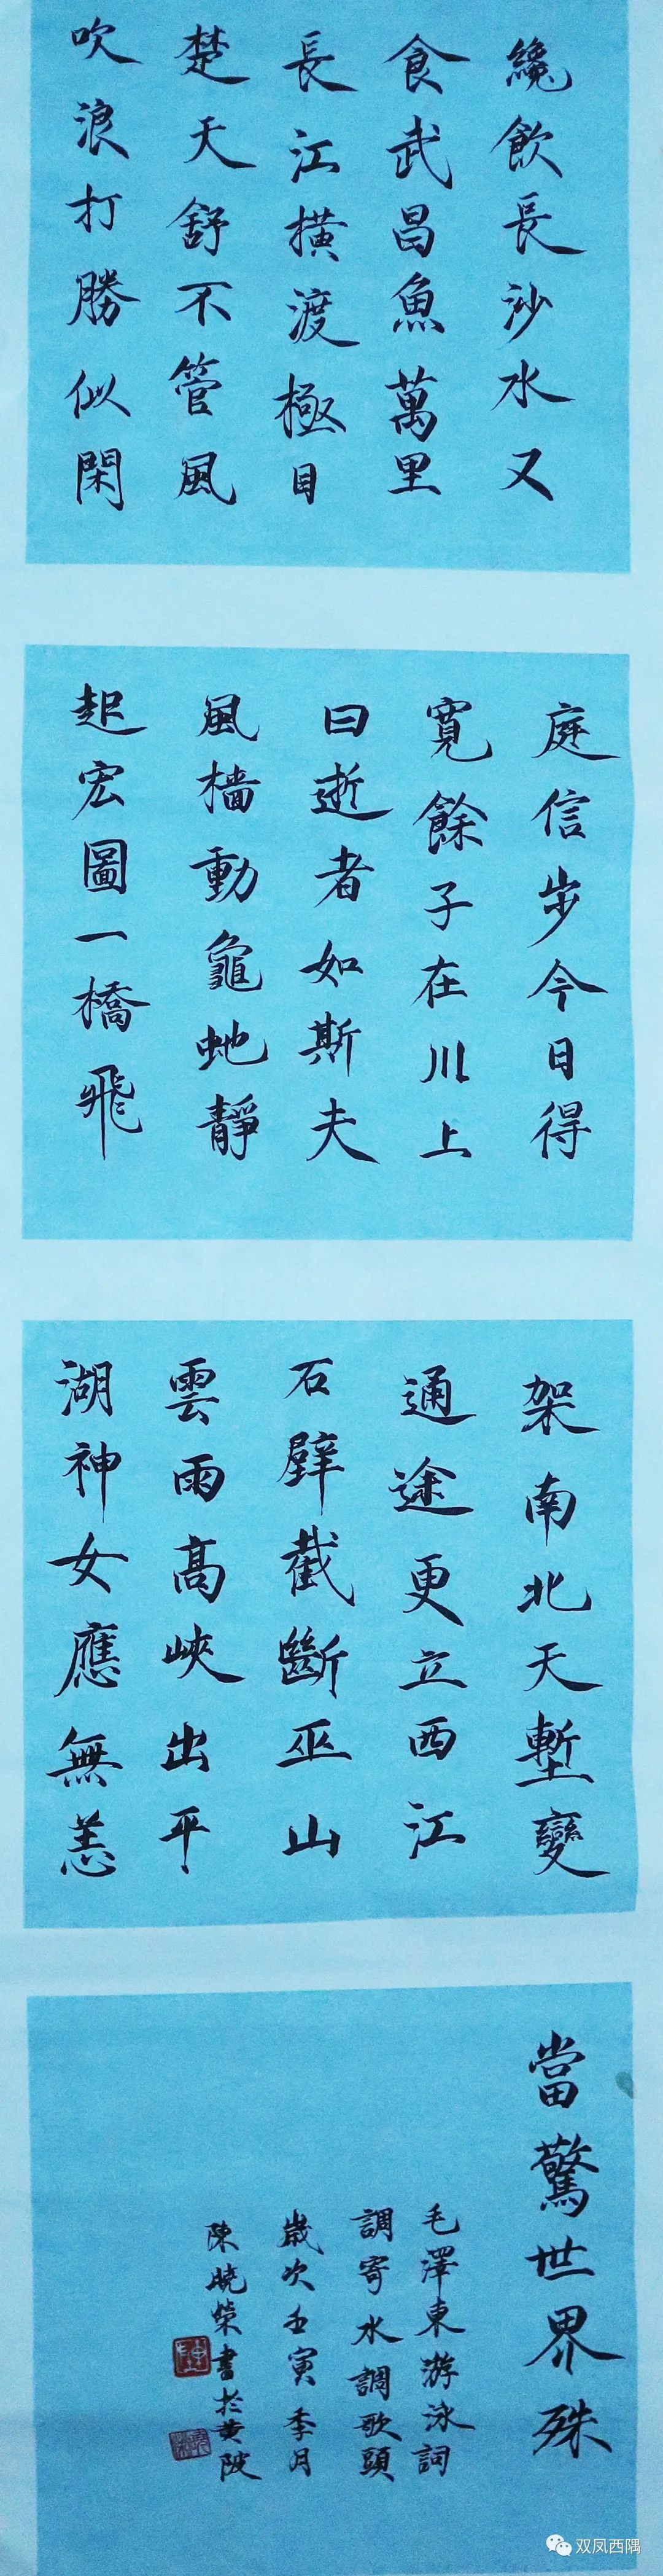 纔飲長沙水又
食武昌魚萬里
長江橫渡極目
楚天舒不管風
吹浪打勝似閑
庭信步今日得
寬餘子在川上
曰逝者如斯夫
風檣動龜虵靜
起宏圖一橋飛
架南北天塹變
通途更立西江
石壁截斷巫山
雲雨高峽出平
湖神女應無恙
當驚世界殊
毛澤東游泳詞
調寄水調歌頭
歲次壬寅季月
陳曉榮書於黄陂
双凤西隅